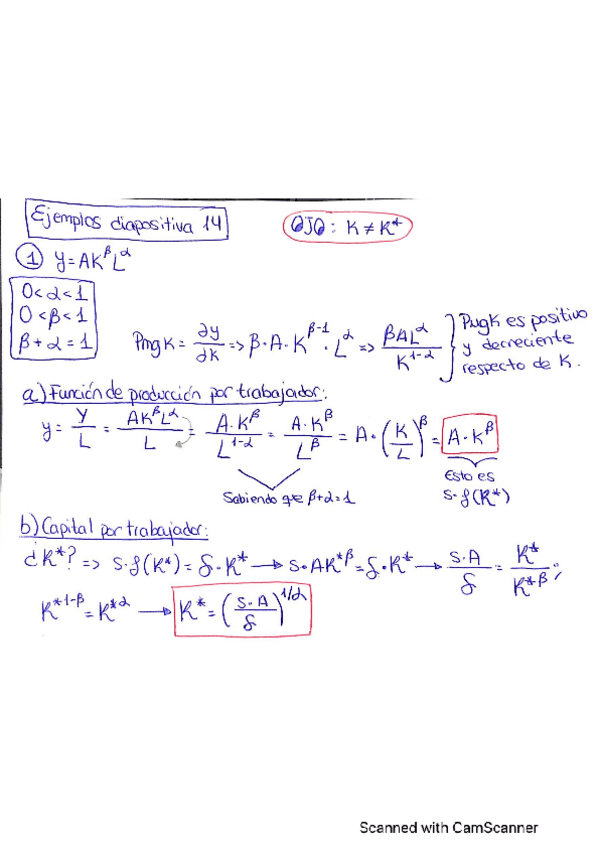 Ejemplos diapositiva 14
OJO: K ≠ K*
① Y=AK^β L^α
0<α<1
0<β<1
β+α=1
PmgK = ∂y/∂K => β·A·K^(β-1)·L^α => βAL^α/K^(1-α) } PmgK es positivo
y decreciente
respecto de K.
a) Función de producción por trabajador:
y = Y/L = AK^β L^α/L = A·K^β/L^(1-α) = A·K^β/L^β = A·(K/L)^β = A·K^β
Sabiendo que β+α=1
Esto es
s·f(K*)
b) Capital por trabajador:
¿K*? => s·f(K*) = δ·K* → s·AK*^β = δ·K* → s·A/δ = K*/K*^β ;
K*^(1-β) = K*^α → K* = (s·A/δ)^(1/α)
Scanned with CamScanner